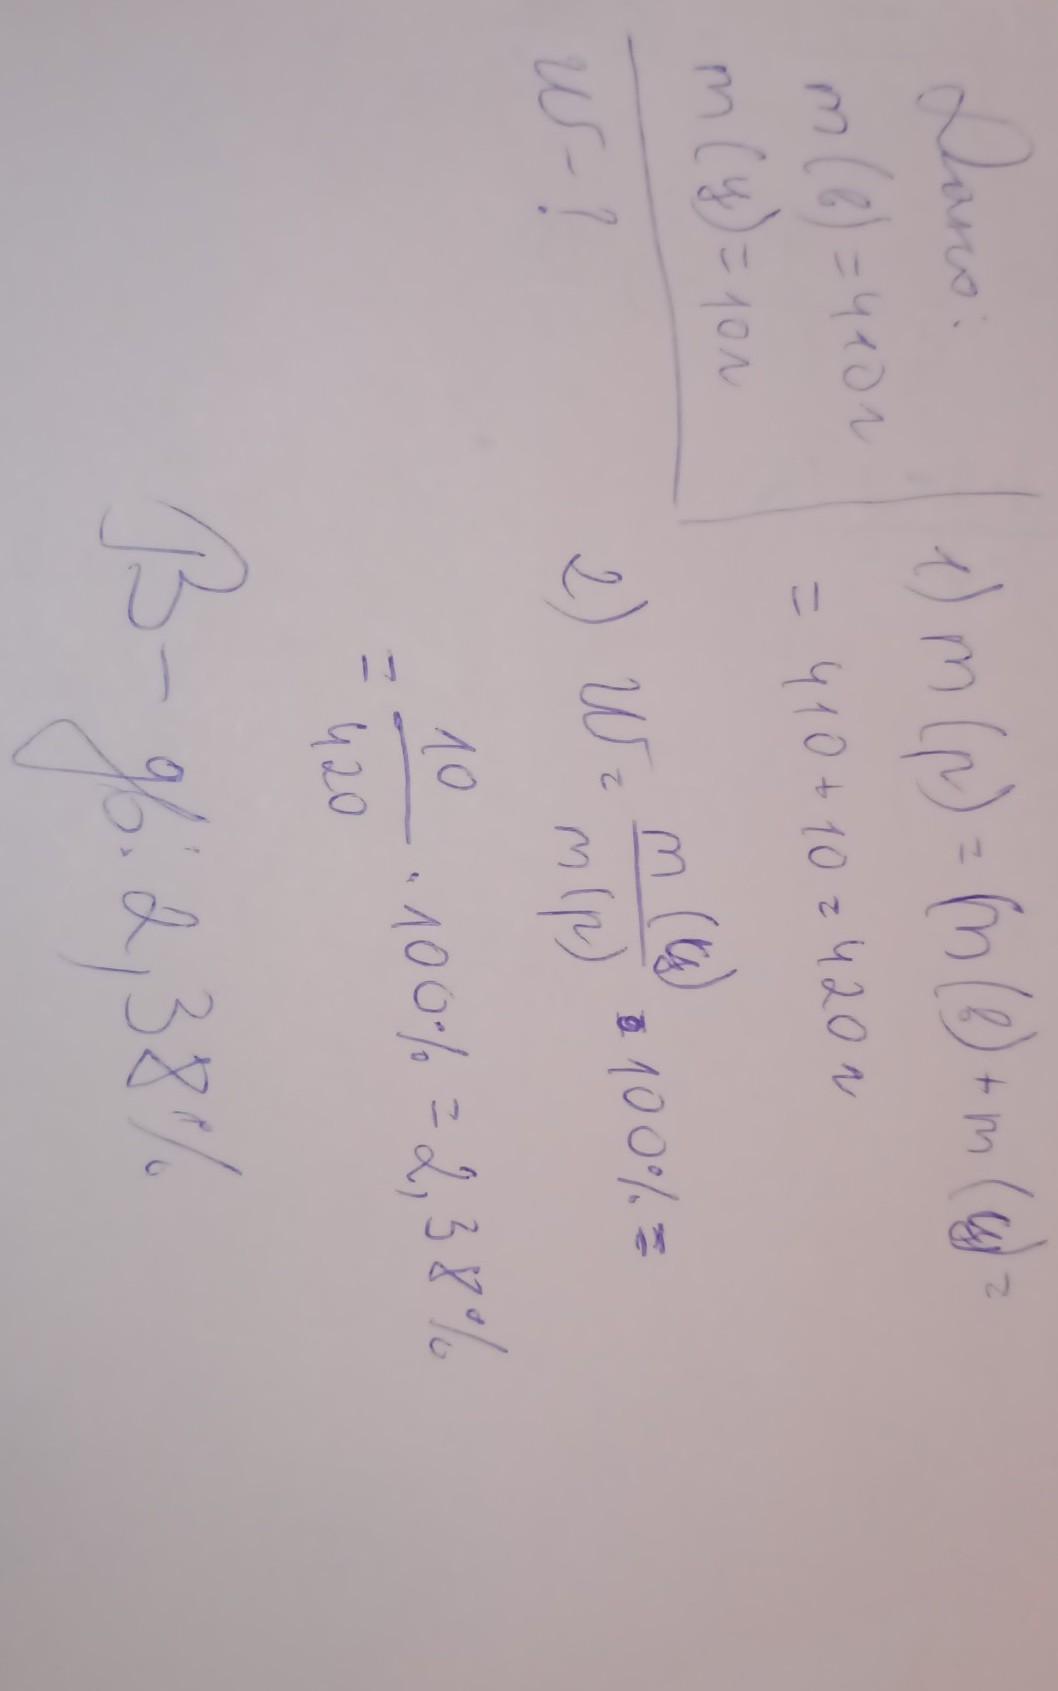 Дано:
m(в) = 410г
m(ц) = 10г
W - ?
1) m(р) = m(в) + m(ц) =
= 410 + 10 = 420г
2) W = m(ц) / m(р) · 100% =
= 10 / 420 · 100% = 2,38%
В-дь: 2,38%